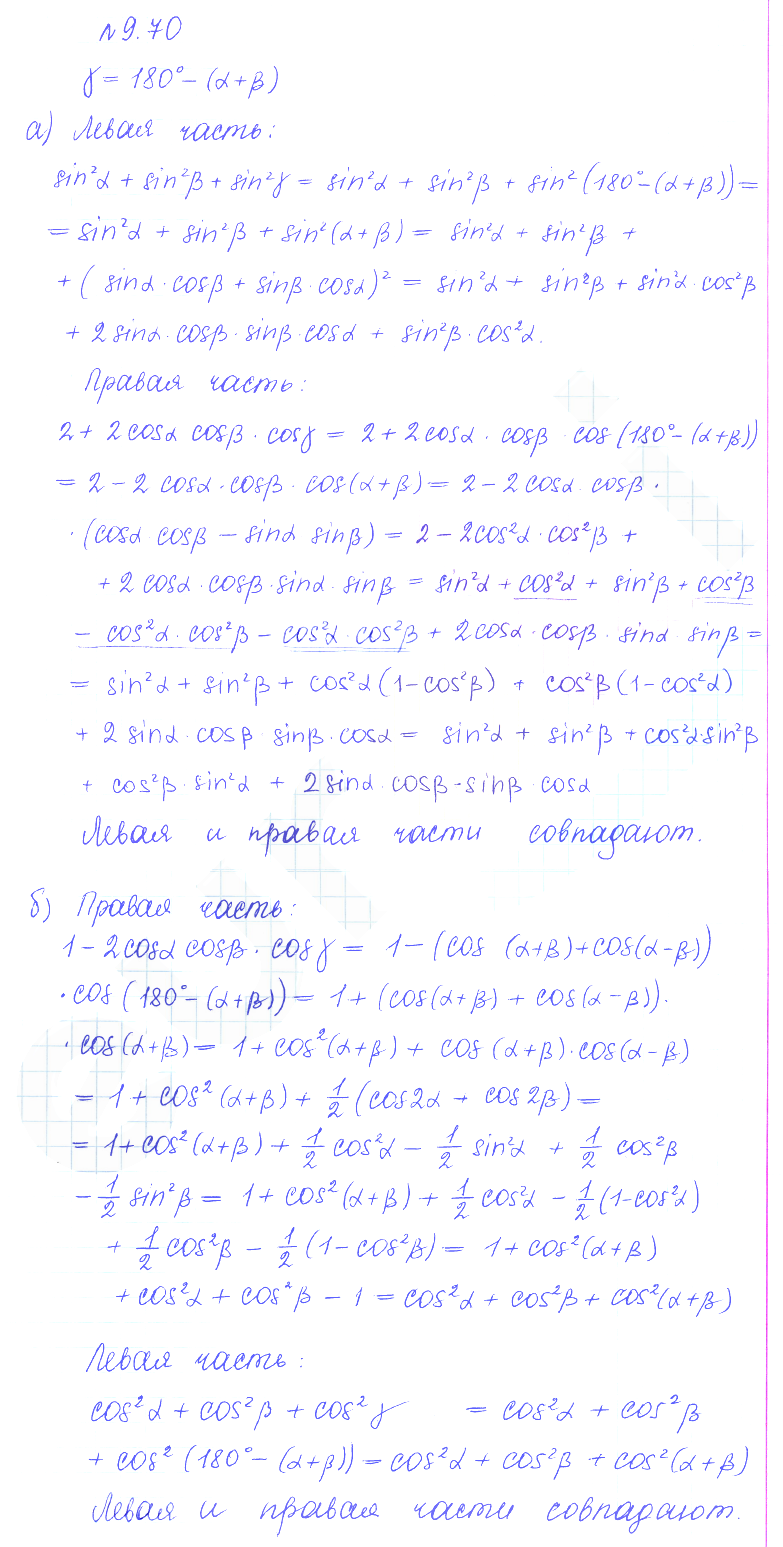 №9.70
γ = 180° – (α+β)
а) Левая часть:
sin²α + sin²β + sin²γ = sin²α + sin²β + sin²(180° – (α+β)) =
= sin²α + sin²β + sin²(α+β) = sin²α + sin²β +
+ (sinα · cosβ + sinβ · cosα)² = sin²α + sin²β + sin²α · cos²β
+ 2sinα · cosβ · sinβ · cosα + sin²β · cos²α.
Правая часть:
2 + 2cosα cosβ · cosγ = 2 + 2cosα · cosβ cos(180° – (α+β))
= 2 – 2 cosα · cosβ · cos(α+β) = 2 – 2cosα cosβ ·
· (cosα cosβ – sinα sinβ) = 2 – 2cos²α · cos²β +
+ 2 cosα · cosβ · sinα · sinβ = sin²α + cos²α + sin²β + cos²β
– cos²α · cos²β – cos²α · cos²β + 2cosα · cosβ · sinα · sinβ =
= sin²α + sin²β + cos²α(1–cos²β) + cos²β(1–cos²α)
+ 2 sinα · cosβ · sinβ · cosα = sin²α + sin²β + cos²α·sin²β
+ cos²β · sin²α + 2sinα · cosβ · sinβ · cosα
Левая и правая части совпадают.
б) Правая часть:
1 – 2cosα cosβ · cosγ = 1 – (cos (α+β) + cos(α–β))
· cos(180° – (α+β)) = 1 + (cos(α+β) + cos(α–β)) ·
· cos(α+β) = 1 + cos²(α+β) + cos(α+β)·cos(α–β)
= 1 + cos²(α+β) + 1/2(cos2α + cos2β) =
= 1 + cos²(α+β) + 1/2 cos²α – 1/2 sin²α + 1/2 cos²β
– 1/2 sin²β = 1 + cos²(α+β) + 1/2 cos²α – 1/2(1–cos²α)
+ 1/2 cos²β – 1/2(1–cos²β) = 1 + cos²(α+β)
+ cos²α + cos²β – 1 = cos²α + cos²β + cos²(α+β)
Левая часть:
cos²α + cos²β + cos²γ = cos²α + cos²β
+ cos²(180° – (α+β)) = cos²α + cos²β + cos²(α+β)
Левая и правая части совпадают.